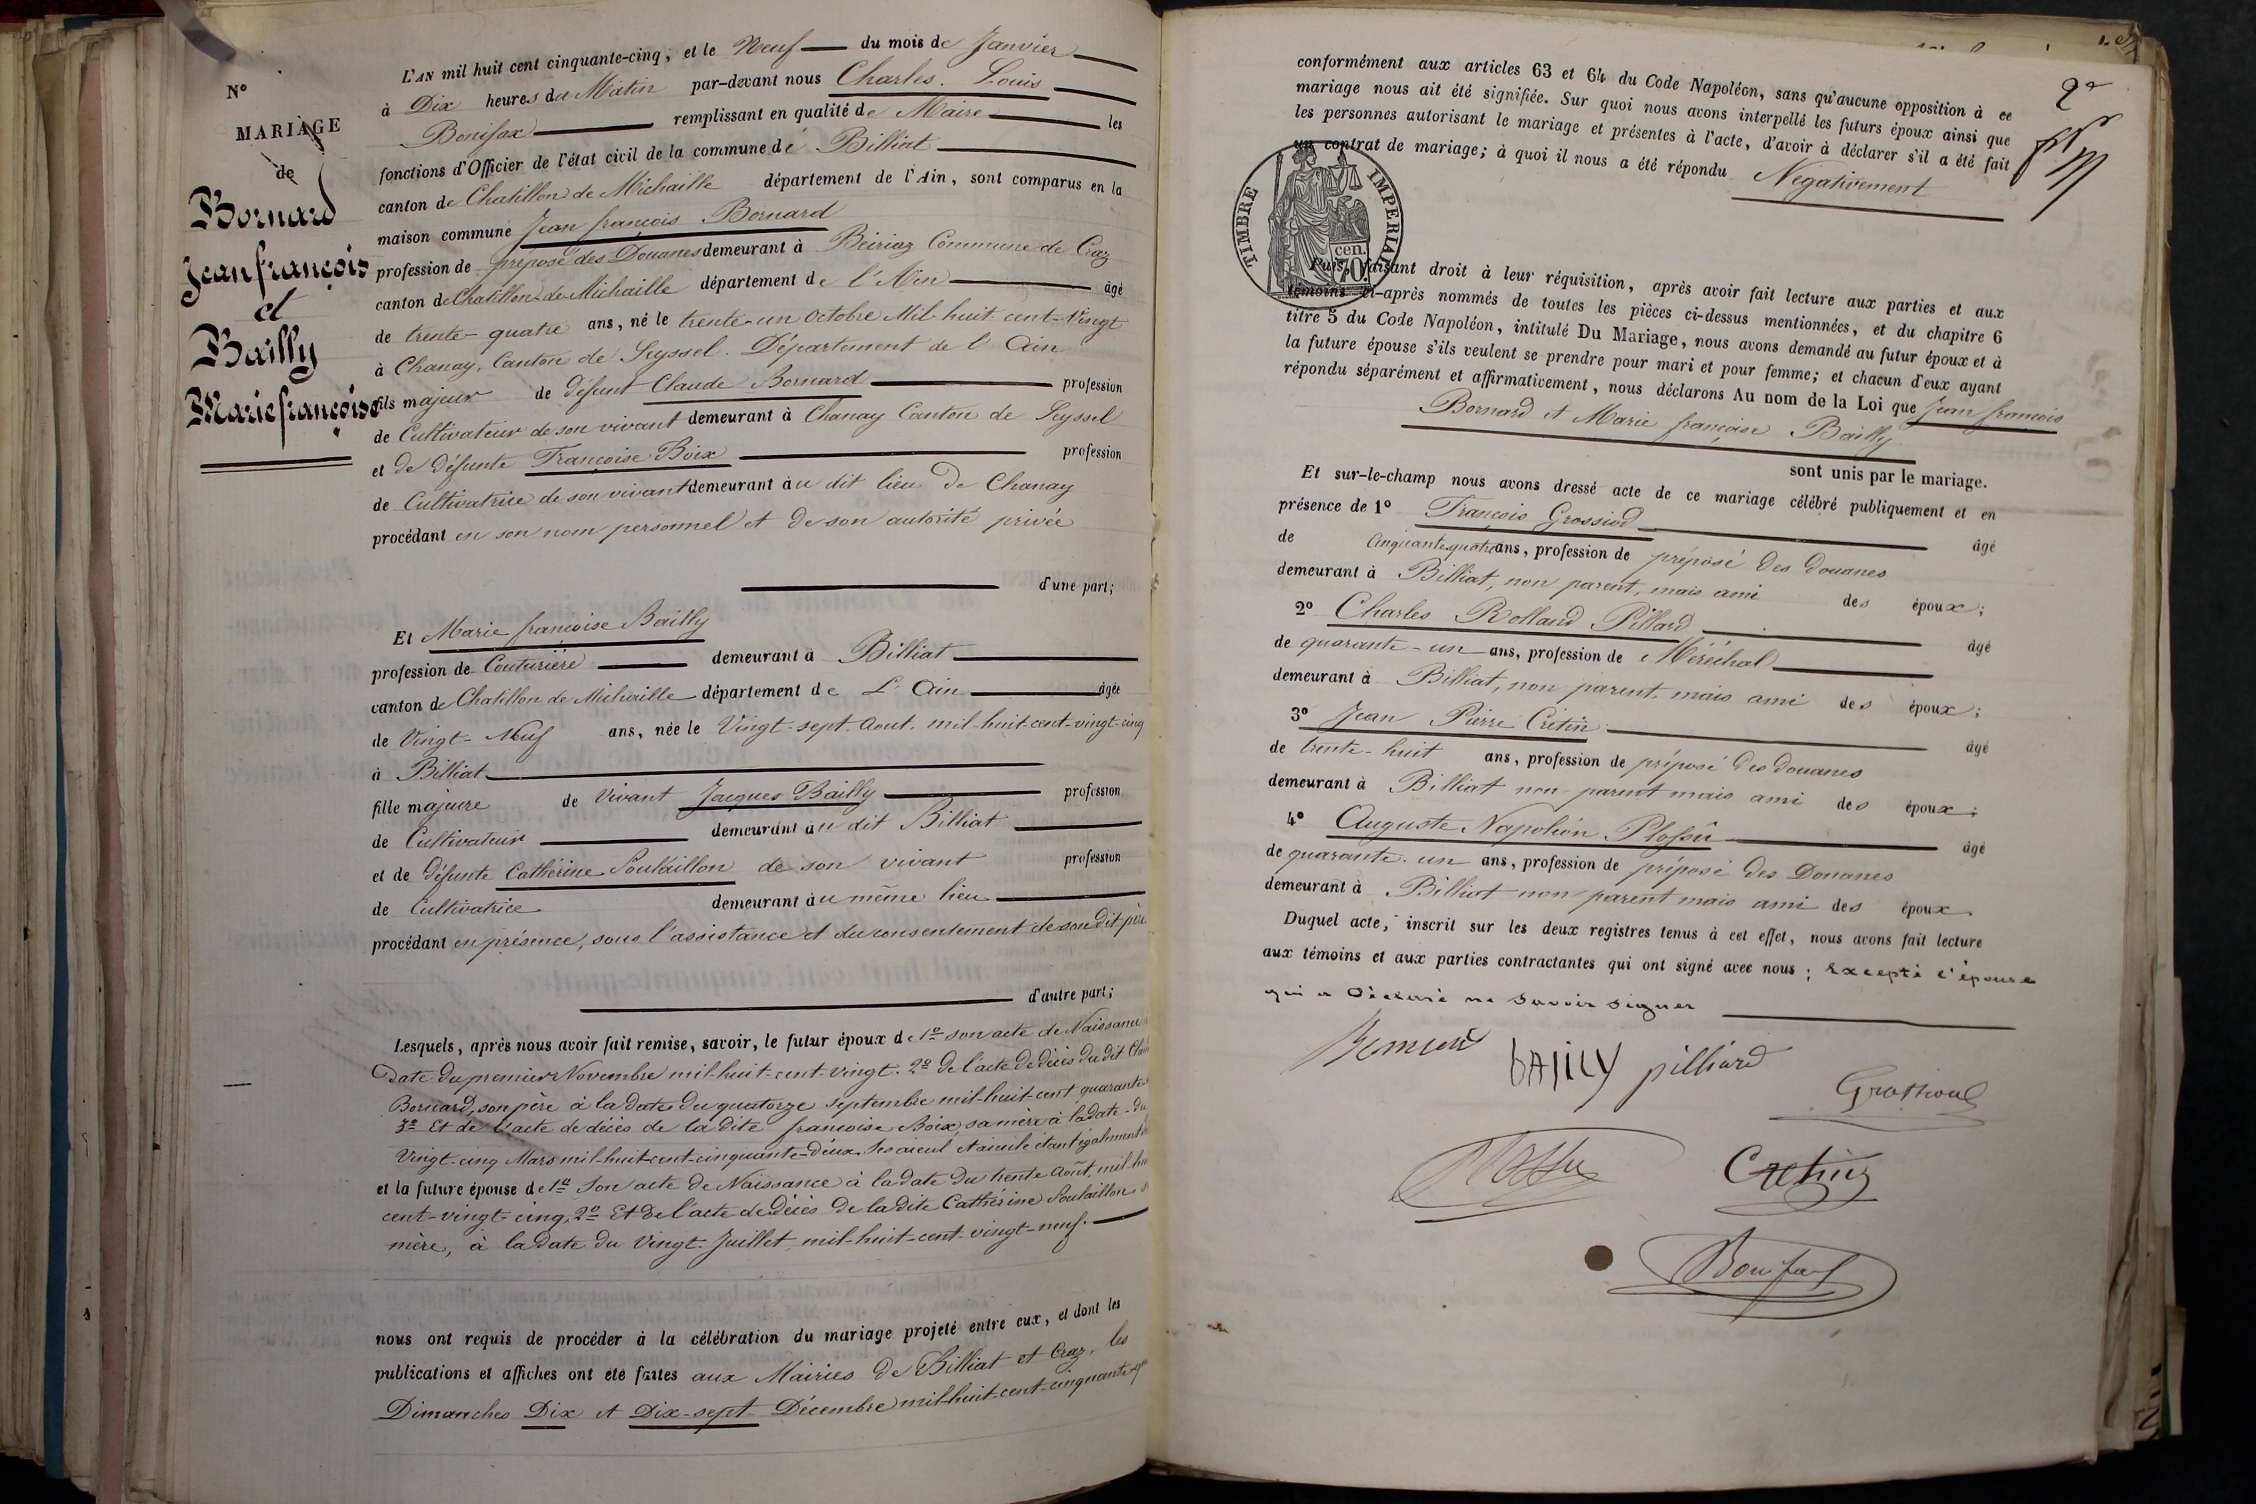 N°
MARIAGE
de
Bornard
Jean françois
et
Bailly
Marie françoise
L'AN mil huit cent cinquante-cinq, et le Neuf du mois de Janvier
à Dix heures du Matin par-devant nous Charles Louis
Bonifax remplissant en qualité de Maire les
fonctions d'Officier de l'état civil de la commune de Billiat
canton de Chatillon de Michaille département de l'Ain, sont comparus en la
maison commune Jean françois Bornard
profession de préposé des Douanes demeurant à Beiriaz Commune de Craz
canton de Chatillon de Michaille département de l'Ain âgé
de trente-quatre ans, né le trente-un Octobre Mil huit cent-Vingt
à Chanay, Canton de Seyssel. Département de l'Ain
fils majeur de défunt Claude Bornard profession
de Cultivateur de son vivant demeurant à Chanay Canton de Seyssel
et de défunte Françoise Boix profession
de Cultivatrice de son vivant demeurant au dit lieu de Chanay
procédant en son nom personnel et de son autorité privée
d'une part;
Et Marie françoise Bailly
profession de Couturière demeurant à Billiat
canton de Chatillon de Michaille département de L'Ain âgée
de Vingt-Neuf ans, née le Vingt-sept Aout mil-huit-cent-vingt-cinq
à Billiat
fille majeure de Vivant Jacques Bailly profession
de Cultivateur demeurant au dit Billiat
et de défunte Cathérine Poulaillon de son vivant profession
de Cultivatrice demeurant au même lieu
procédant en présence, sous l'assistance et du consentement de son dit père
d'autre part;
Lesquels, après nous avoir fait remise, savoir, le futur époux de 1° son acte de Naissance
Date du premier Novembre mil-huit-cent-vingt. 2° de l'acte de décès du dit
Bornard, son père à la date du quatorze septembre mil-huit-cent quarante
3° Et de l'acte de décès de la dite françoise Boix, sa mère à la date du
Vingt-cinq Mars mil-huit-cent-cinquante-deux. Ses aieul et aieule étant également
et la future épouse de 1° Son acte de Naissance à la date du trente Août, mil-
cent-vingt-cinq, 2° Et de l'acte de décès de la dite Cathérine Poulaillon
mère, à la date du Vingt Juillet mil-huit-cent-vingt-neuf.
nous ont requis de procéder à la célébration du mariage projeté entre eux, et dont les
publications et affiches ont été faites aux Mairies de Billiat et Craz, les
Dimanches Dix et Dix-sept Décembre mil-huit-cent-cinquante
2e
conformément aux articles 63 et 64 du Code Napoléon, sans qu'aucune opposition à ce
mariage nous ait été signifiée. Sur quoi nous avons interpellé les futurs époux ainsi que
les personnes autorisant le mariage et présentes à l'acte, d'avoir à déclarer s'il a été fait
un contrat de mariage; à quoi il nous a été répondu Negativement
TIMBRE IMPERIAL
70 cen.
Puis, faisant droit à leur réquisition, après avoir fait lecture aux parties et aux
témoins ci-après nommés de toutes les pièces ci-dessus mentionnées, et du chapitre 6
titre 5 du Code Napoléon, intitulé Du Mariage, nous avons demandé au futur époux et à
la future épouse s'ils veulent se prendre pour mari et pour femme; et chacun d'eux ayant
répondu séparément et affirmativement, nous déclarons Au nom de la Loi que Jean françois
Bornard et Marie françoise Bailly
sont unis par le mariage.
Et sur-le-champ nous avons dressé acte de ce mariage célébré publiquement et en
présence de 1° François Grossiod âgé
de Cinquante quatre ans, profession de préposé des douanes
demeurant à Billiat, non parent, mais ami des époux;
2° Charles Rolland Pilliard âgé
de quarante-un ans, profession de Maréchal
demeurant à Billiat, non parent, mais ami des époux;
3° Jean Pierre Cretin âgé
de trente-huit ans, profession de préposé des douanes
demeurant à Billiat non parent mais ami des époux;
4° Auguste Napoléon Plossu âgé
de quarante-un ans, profession de préposé des Douanes
demeurant à Billiat non parent mais ami des époux
Duquel acte, inscrit sur les deux registres tenus à cet effet, nous avons fait lecture
aux témoins et aux parties contractantes qui ont signé avec nous; Excepté l'épouse
qui a Déclaré ne savoir signer
Bornard
BAILLY pilliard
Grossiod
Plossu
Cretin
Bonifax